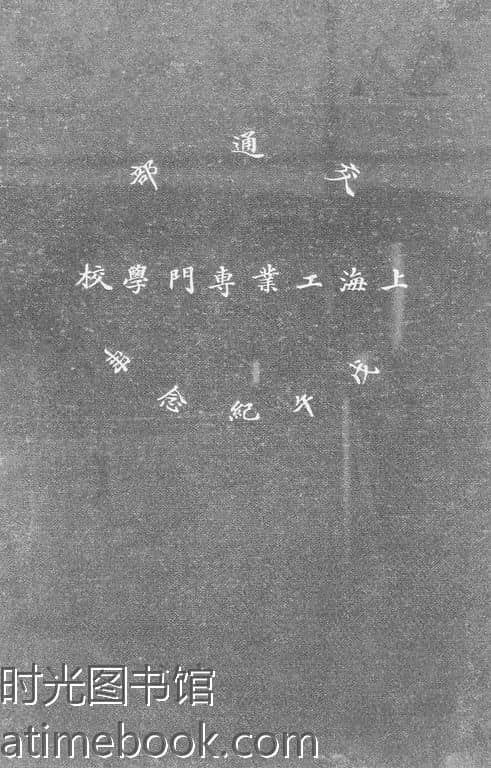 交通部
上海工業專門學校
戊午紀念冊
时光图书馆
atimebook.com